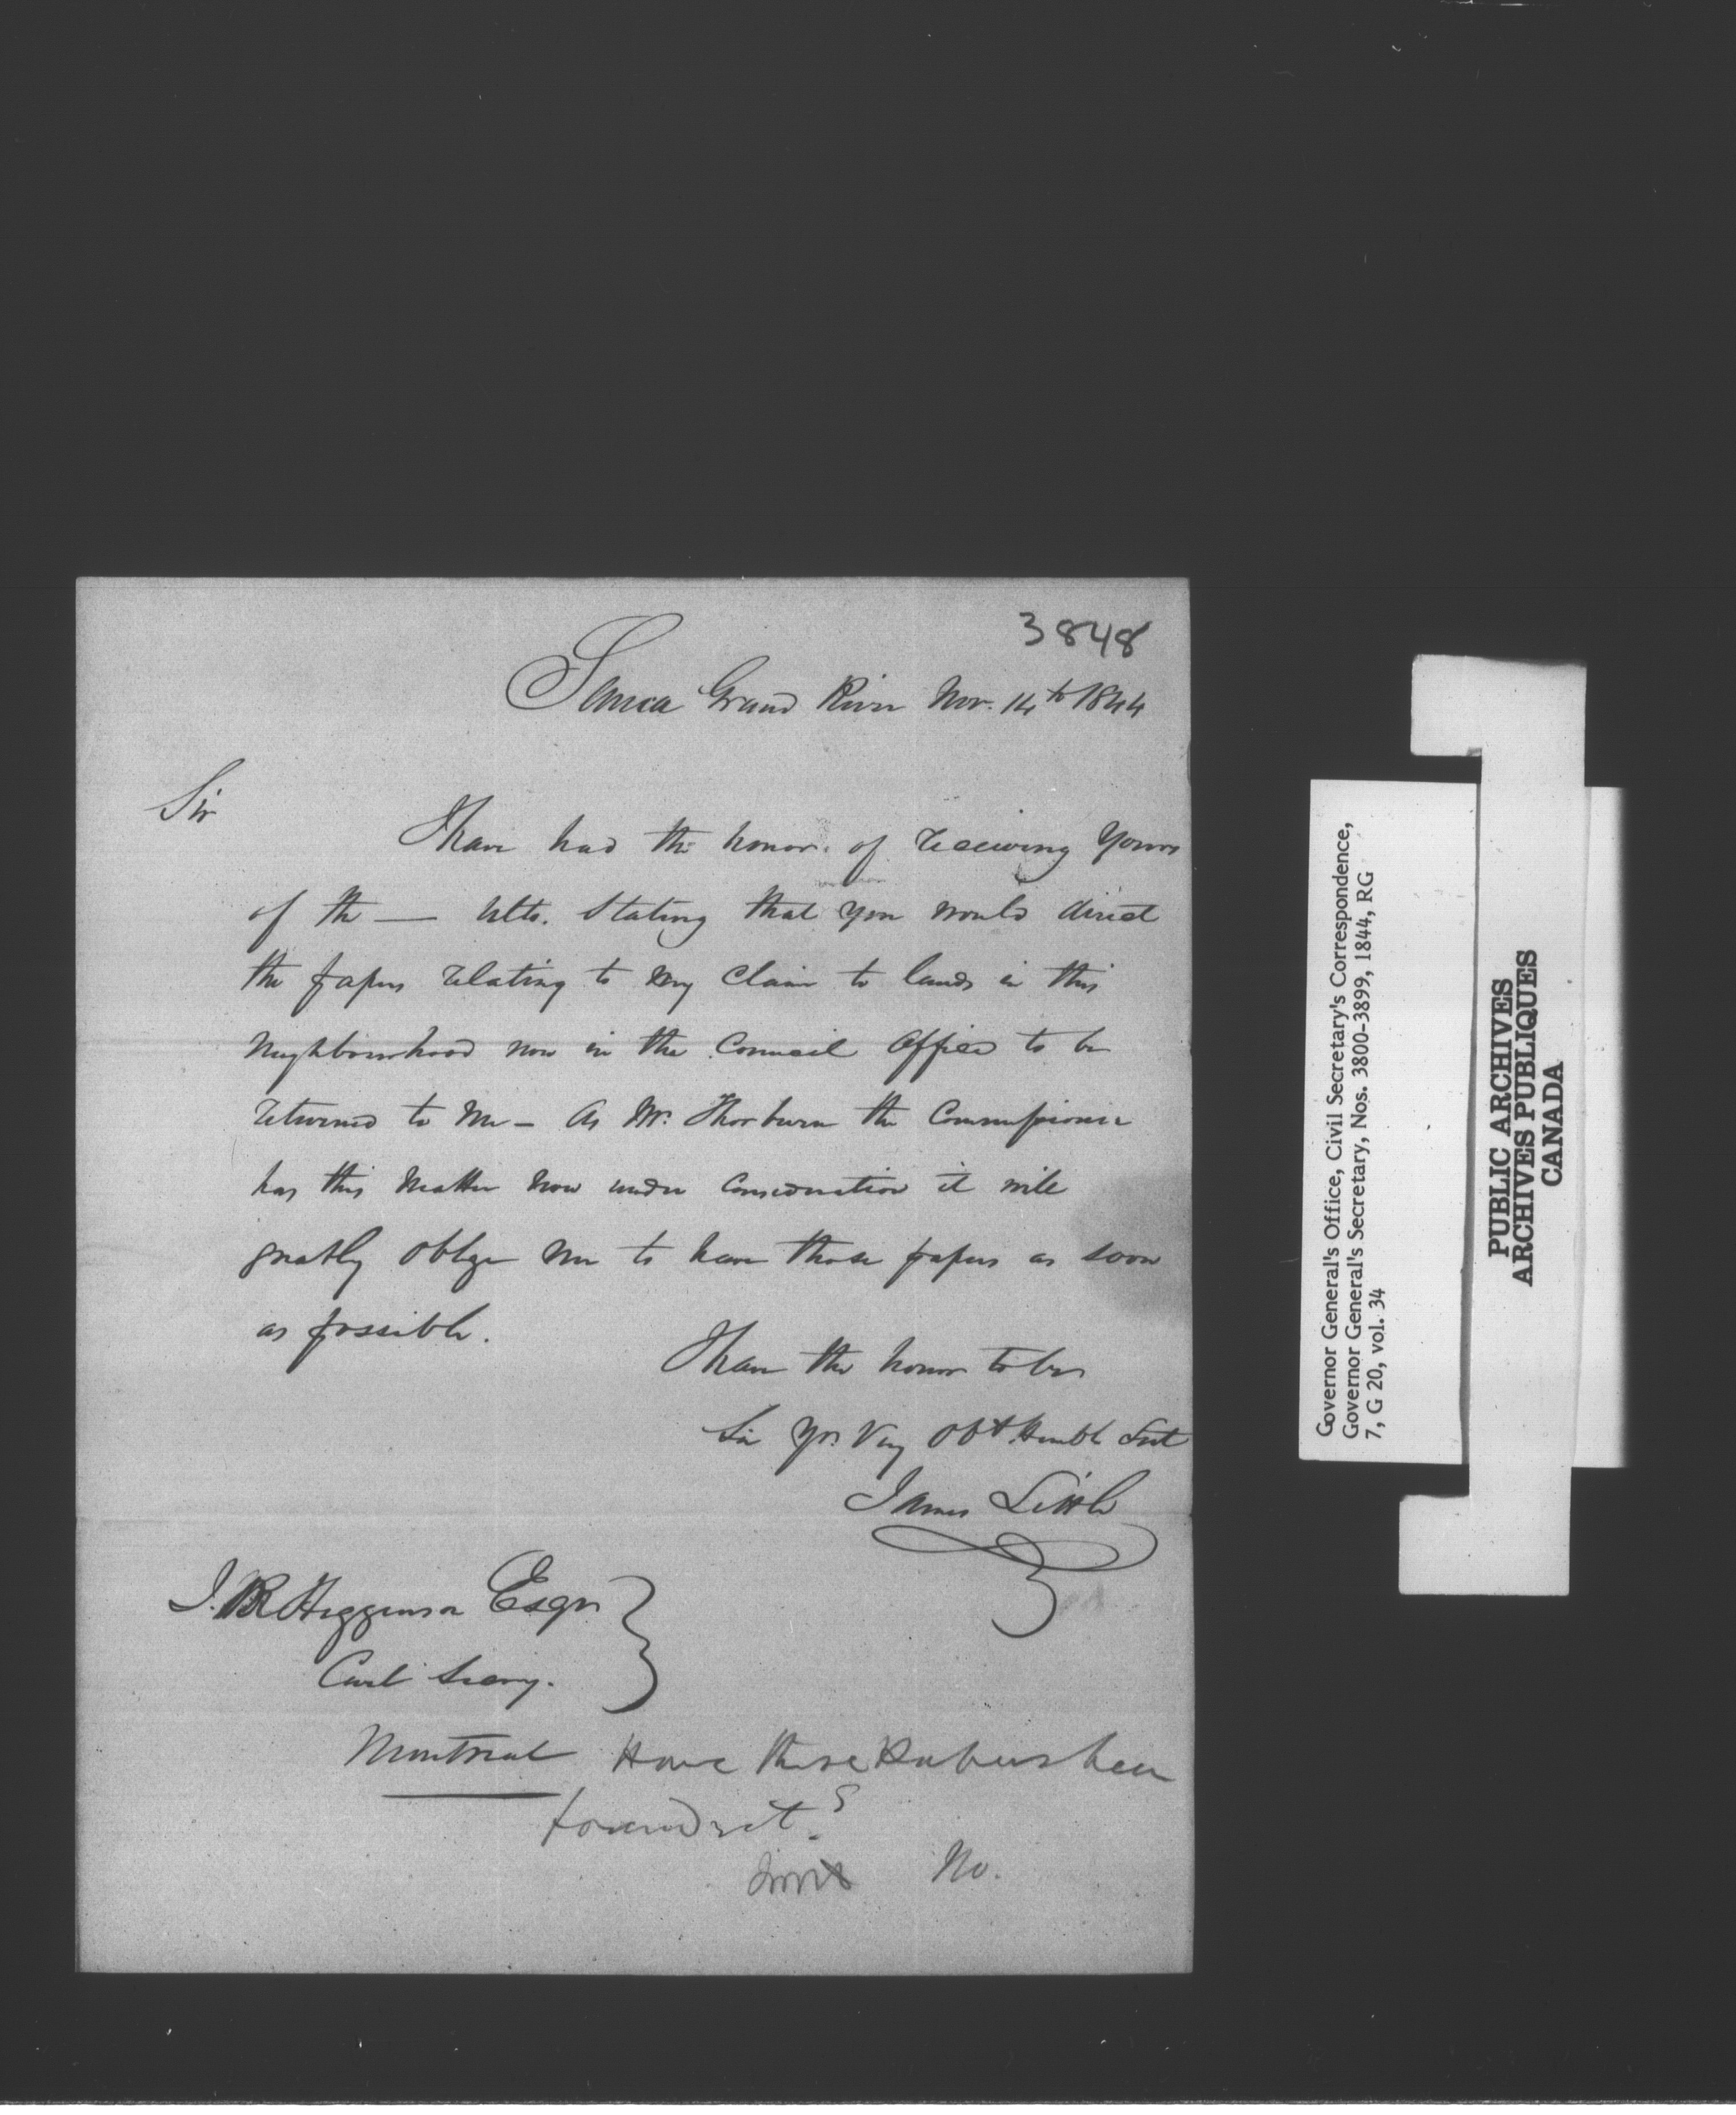 3848
Seneca Grand River Nov. 14th 1844
Sir
I have had the honor of receiving yours
of the — Ulto. Stating that you would direct
the papers relating to my Claim to lands in this
Neighbourhood now in the Council Office to be
returned to me – As Mr. Thorburn the Commissioner
has this matter now under consideration it will
greatly oblige me to have those papers as soon
as possible.
I have the honor to be
Sir Yr. Very Obt Humble Svt
James Little
J. R. Higginson Esqr.
Civil Secry.
Montreal
Have these papers been
found yet?
No.
Governor General's Office, Civil Secretary's Correspondence,
Governor General's Secretary, Nos. 3800-3899, 1844, RG
7, G 20, vol. 34
PUBLIC ARCHIVES
ARCHIVES PUBLIQUES
CANADA